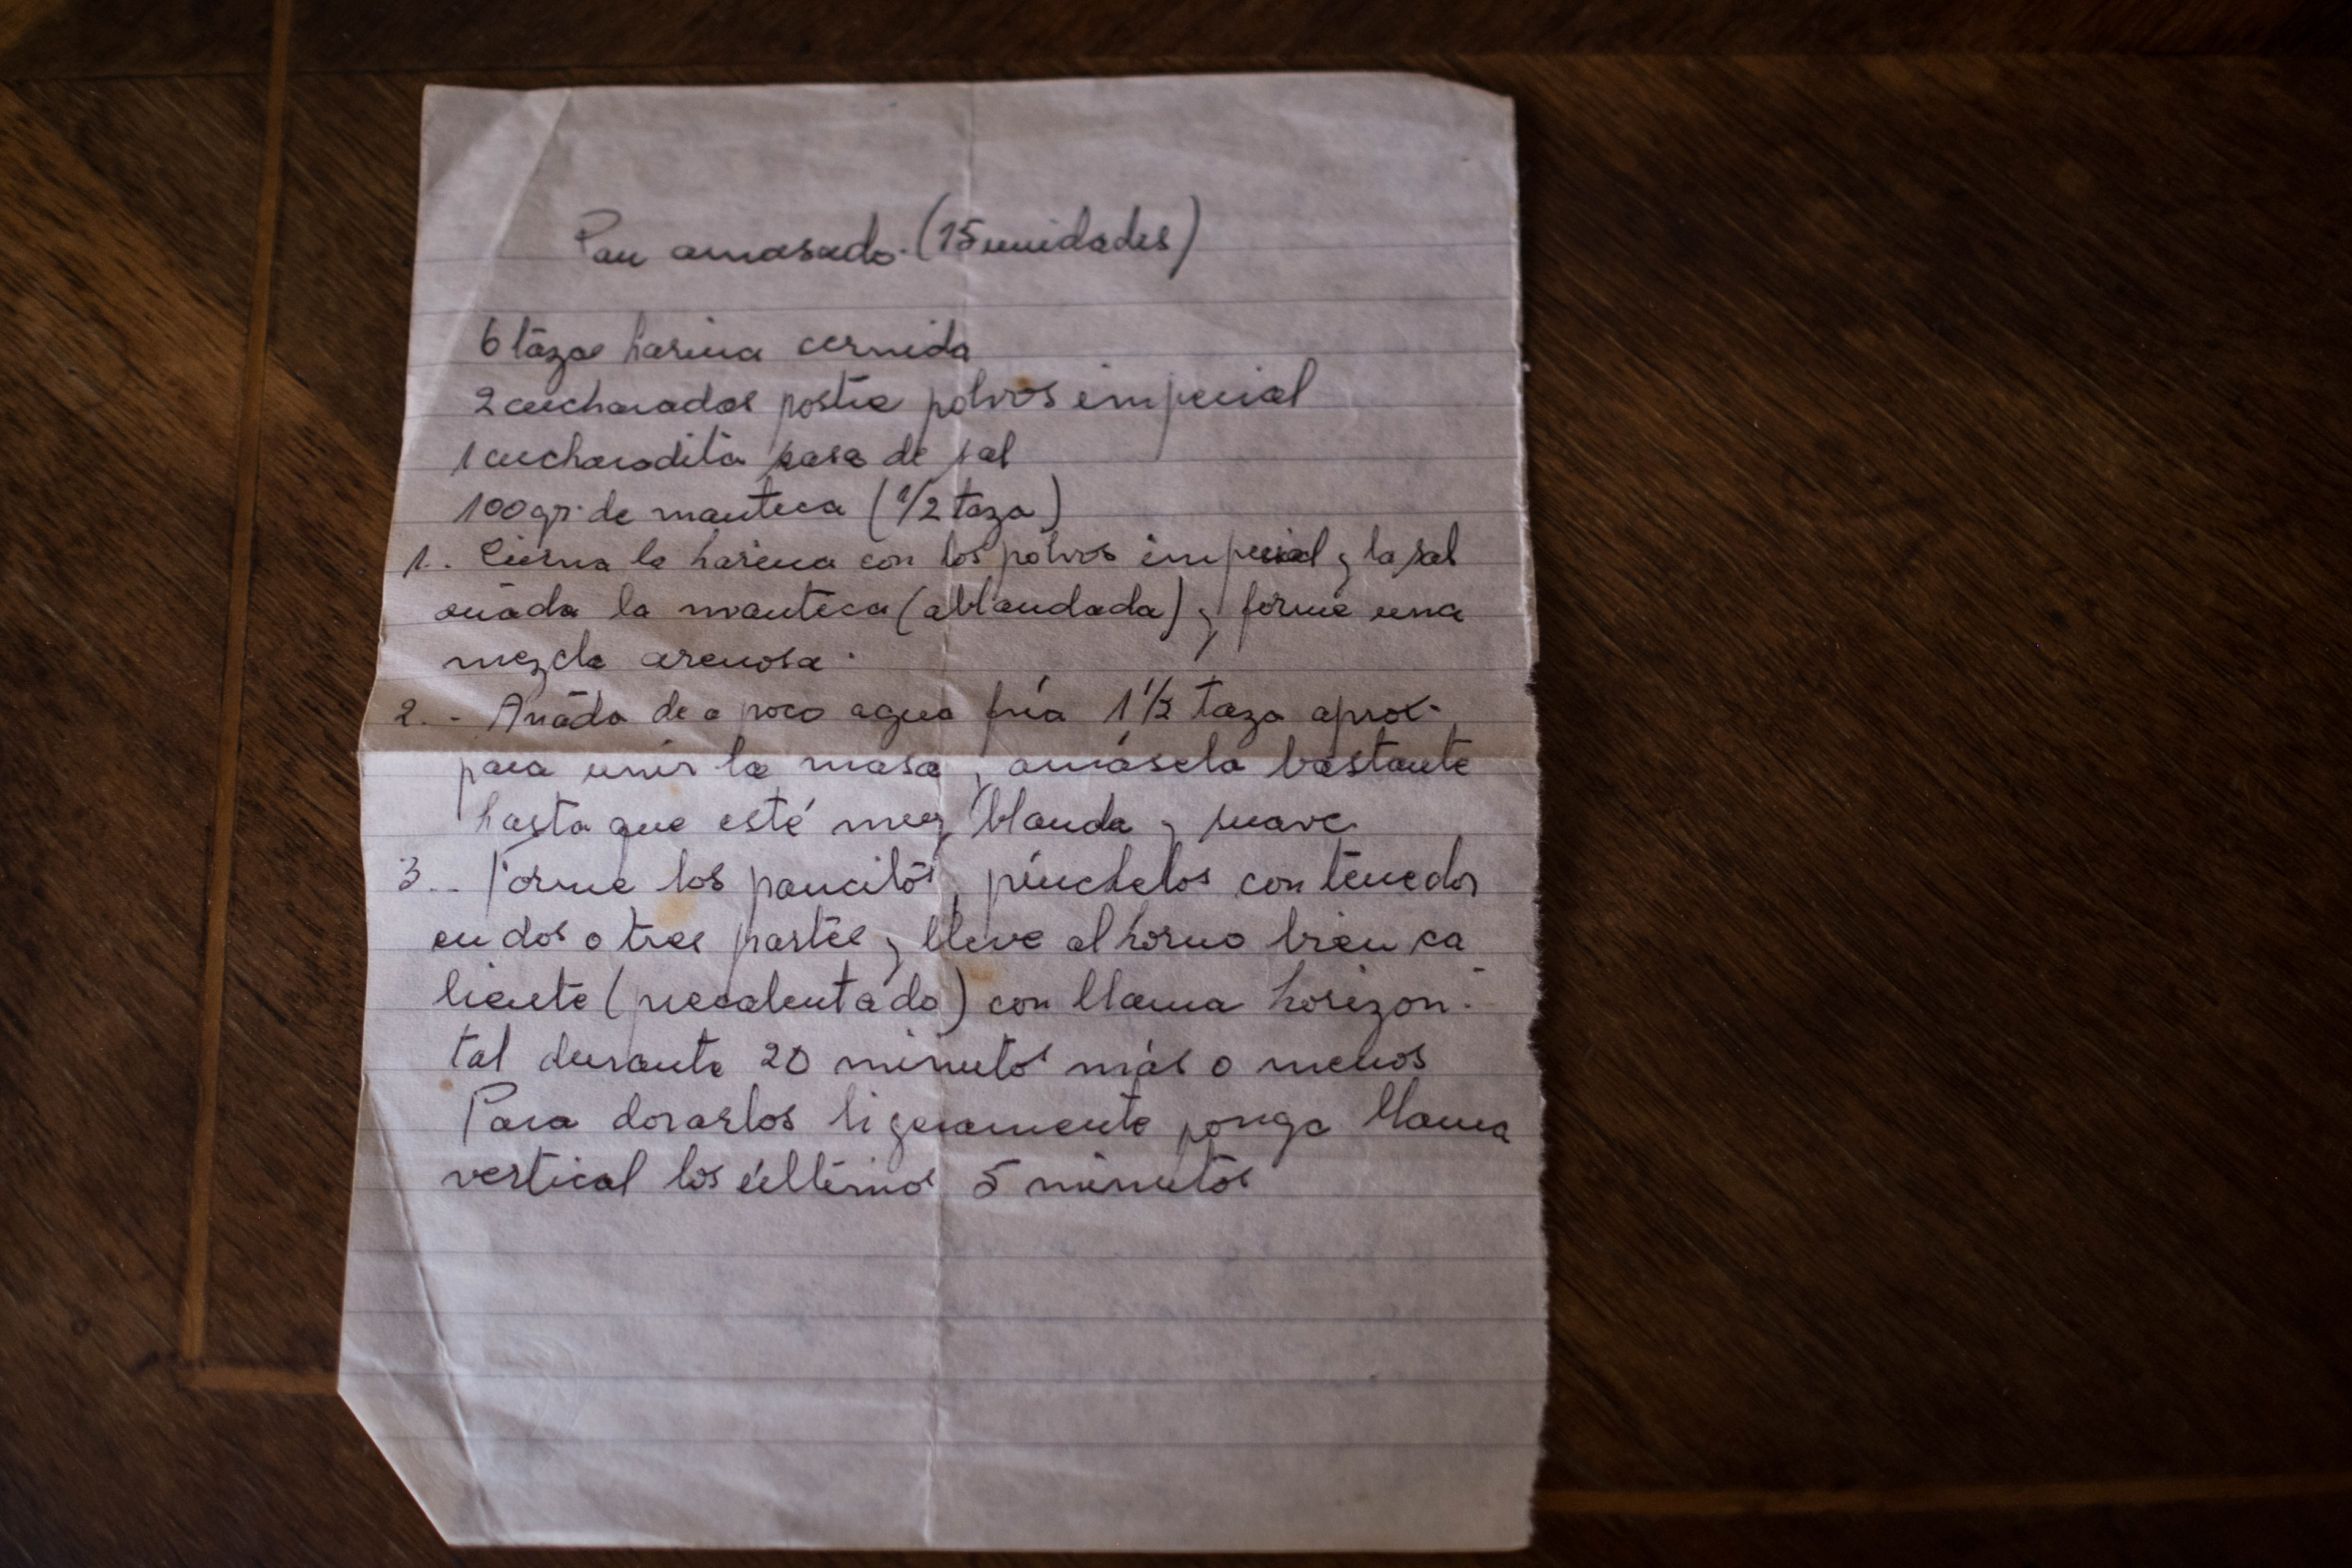 Pan amasado. (15 unidades)
6 tazas harina cernida
2 cucharadas postre polvos imperial
1 cucharadita rasa de sal
100 gr. de manteca (1/2 taza)
1.. Cierna la harina con los polvos imperial y la sal
añada la manteca (ablandada) y forme una
mezcla arenosa.
2. - Añada de a poco agua fría 1 1/2 taza aprox.
para unir la masa y amásela bastante
hasta que esté muy blanda y suave.
3.. Forme los pancitos, pínchelos con tenedor
en dos o tres partes y lleve al horno bien ca
liente (recalentado) con llama horizon-
tal durante 20 minutos más o menos
Para dorarlos ligeramente ponga llama
vertical los últimos 5 minutos